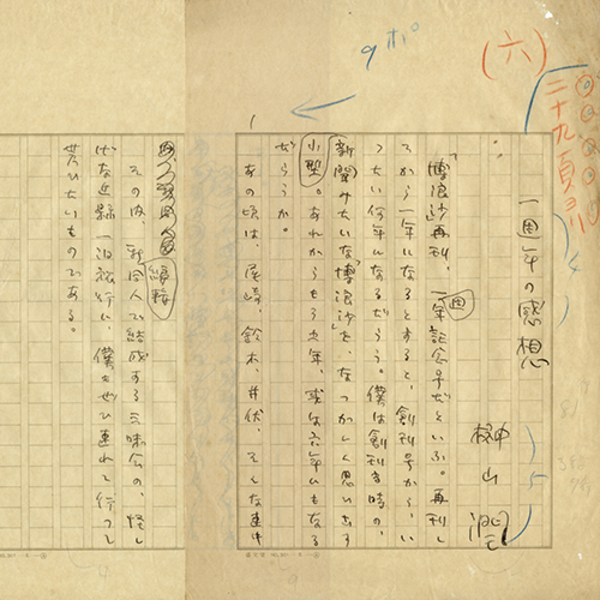 二十九頁ヨリ
(六)
9ポ
一周年の感想
榊山潤
博浪沙再刊、一周年記念号だといふ。再刊し
てから一年になるとすると、創刊号から、い
つたい何年になるだらう。僕は創刊当時の、
新聞みたいな「博浪沙」を、なつかしく思ひ出す
小型。あれからもう五年、或は六年にもなる
だらうか。
あの頃は、尾崎、鈴木、井伏、そんな連中
その内、新同人で結成する三味会の、怪し
げな近県一泊旅行に、僕もぜひ連れて行つて
貰ひたいものである。